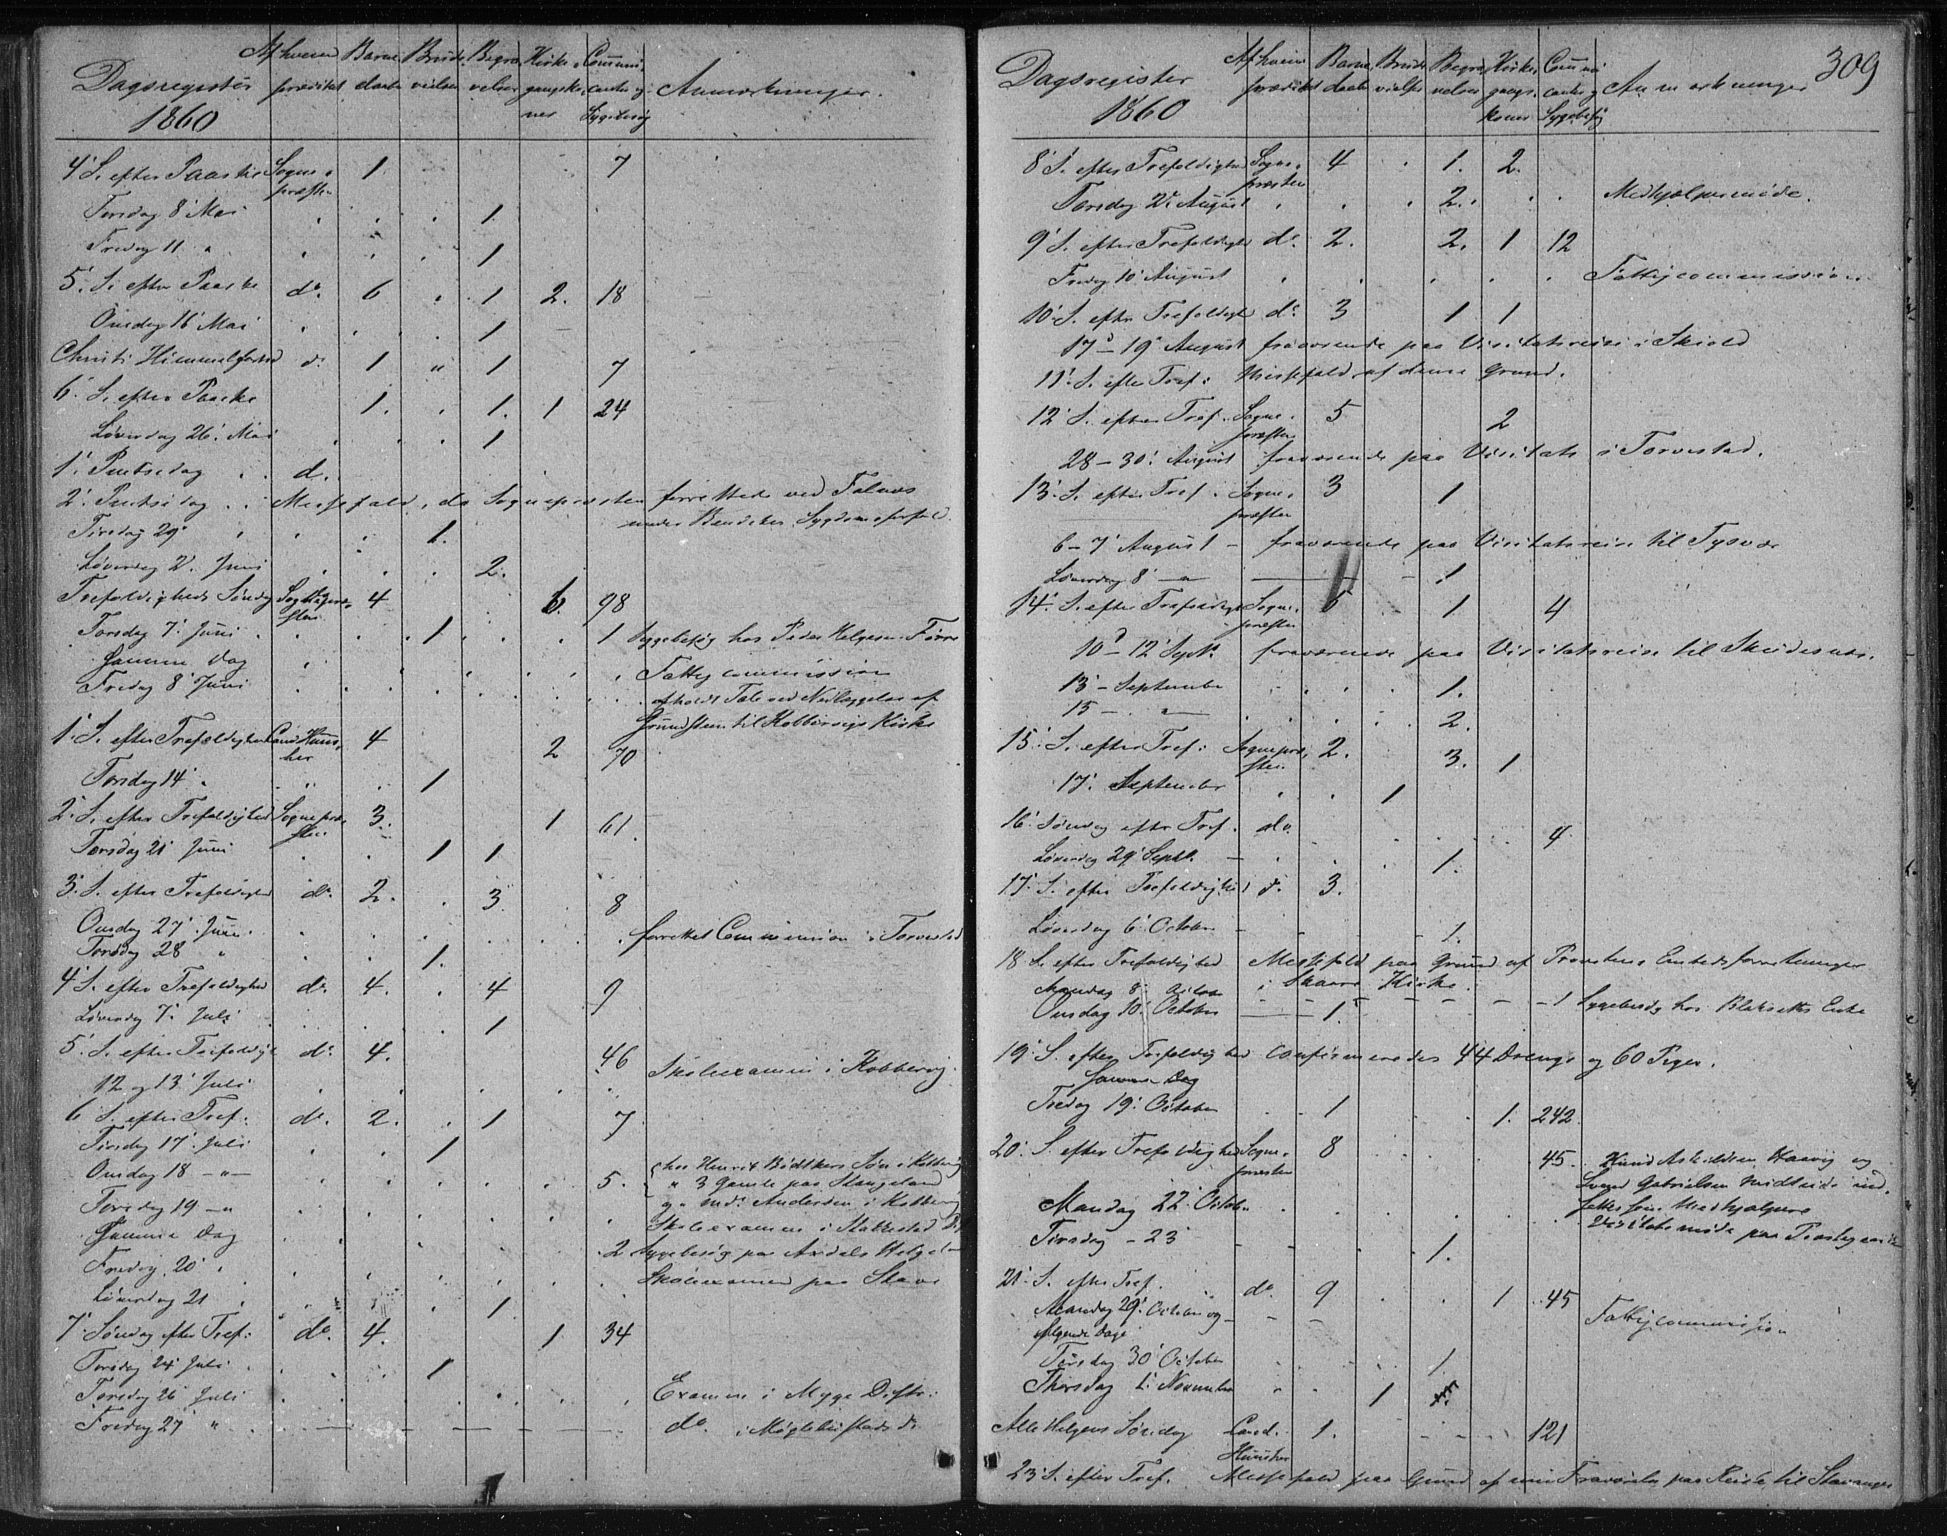 Dagsregister
1860
Af hvem prædiket
Barne daab
Brude vielser
Begra velser
Kirke gangsko ner
Communi canter og Sygebesøg
Anmærkninger.
4' S. efter Paaske Sogne præsten 1. 7
Tirsdag 8' Mai 1.
Fredag 11 " 1
5' S. efter Paaske do. 6 1 2. 18
Onsdag 16' Mai 1
Christi Himmelfarts d. 1 " 1 7
6' S. efter Paaske 1. 1. 1 24
Løverdag 26' Mai 1
1' Pintsedag d.
2' Pintsedag Messefald, da Sognepræsten forrettede ved Falnæs
under Sygdomsforfald.
Tirsdag 29' 1.
Løverdag 2' Juni 2.
Trefoldigheds Søndag Sognepræ sten 4 6. 98
Torsdag 7' Juni 1 1 Sygebesøg hos Peder Helgesen Førre
Samme Dag Fattigcommission
Fredag 8' Juni afholdt Tale ved Nedlæggelse af
Grundsten til Kobbervigs Kirke
1' S. efter Trefoldighed Cand. 4 2 70
Torsdag 14' 1
2' S. efter Trefoldighed Sognepræ sten 3. 1 61
Torsdag 21' Juni 1 1
3' S. efter Trefoldighed do. 2. 3. 8
Onsdag 27' Juni forrettet Commission i Torvestad
Torsdag 28 " 1.
4' S. efter Trefoldighed do. 4. 4 9
Løverdag 7' Juli 1
5' S. efter Trefoldigh do. 4. 46
12 og 13' Juli Skoleexamen i Kobbervig.
6' S. efter Tref: do. 2. 1 7
Tirsdag 17' Juli 1
Onsdag 18 — " — 5. hos Henrik Bødtkers Søn i Kobbervig
" 3 Gamle paa Stangeland
og " Andersen i Kobbervig
Torsdag 19 — " Skoleexamen i Stakkestad D.
Samme Dag 2 Sygebesøg paa
Fredag 20' Skoleexamen paa Stave
Løverdag 21 1
7' Søndag efter Tref: do. 4. 1 34
Tirsdag 24' Juli 1
Torsdag 26' Juli Examen i Myge Distr:
Fredag 27' " do. i do
309
Dagsregister
1860
Af hvem prædiket
Barne daab
Brude vielse
Begra velser
Kirke gangs koner
Commu canter og Sygebesøg
Anmærkninger
8' S. efter Trefoldighed Sogne præsten 4 1. 2.
Torsdag 2' August 2. Medhjælpermøde.
9' S. efter Trefoldighe do. 2. 2. 1 12
Fredag 10' August Fattigcommission
10' S. efter Trefoldighe do. 3 1 1
17' — 19' August fraværende paa Visitatsreise i Skiold
11' S. efter Tref: Messefald af denne Grund.
12' S. efter Tref. Sogne præsten 5 2
28 — 30' August fraværende paa Visitats i Torvestad.
13' S. efter Tref. Sogne præsten 3 1
6 — 7' August — fraværende paa Visitatsreise til Tysvær
Løverdag 8' — " 1
14' S. efter Trefoldigh Sogne præsten 5 1 4
10' — 12' Sept. fraværende paa Visitatsreise til Skudesnæs.
13 — September 1.
15 — " 2.
15' S. efter Tref: Sognepræ sten 2. 3. 1
17' September 1
16' Søndag efter Tref. do. 4.
Løverdag 29' Septb. 1.
17' S. efter Trefoldighed d. 3.
Løverdag 6' October 1.
18 S. efter Trefoldighed Messefald paa Grund af Provstens Embedsforretninger
i Skaare Kirke.
Mandag 8' October
Onsdag 10' October 1. 1 Sygebesøg hos Enke
19' S. efter Trefoldighed confirmeredes 44 Drenge og 60 Piger.
Samme Dag
Fredag 19' October 1 1. 242.
20' S. efter Trefoldighed Sogne præsten 8 45. Knud Askildsen Haavig og
Svend Gabrielsen ind
sættes som Medhjælpere
Mandag 22' October Visitatsmøde paa Præstegaarden
Tirsdag — 23 1.
21' S. efter Tref. do. 9 1 45
Mandag 29' October og Fattigcommission
følgende Dage
Tirsdag 30' October 1
Thorsdag 1' November 1
Alle Helgens Søndag Cand. 1. 121
23' S. efter Tref. Messefald paa Grund af min Fraværelse paa Reise til Stavanger